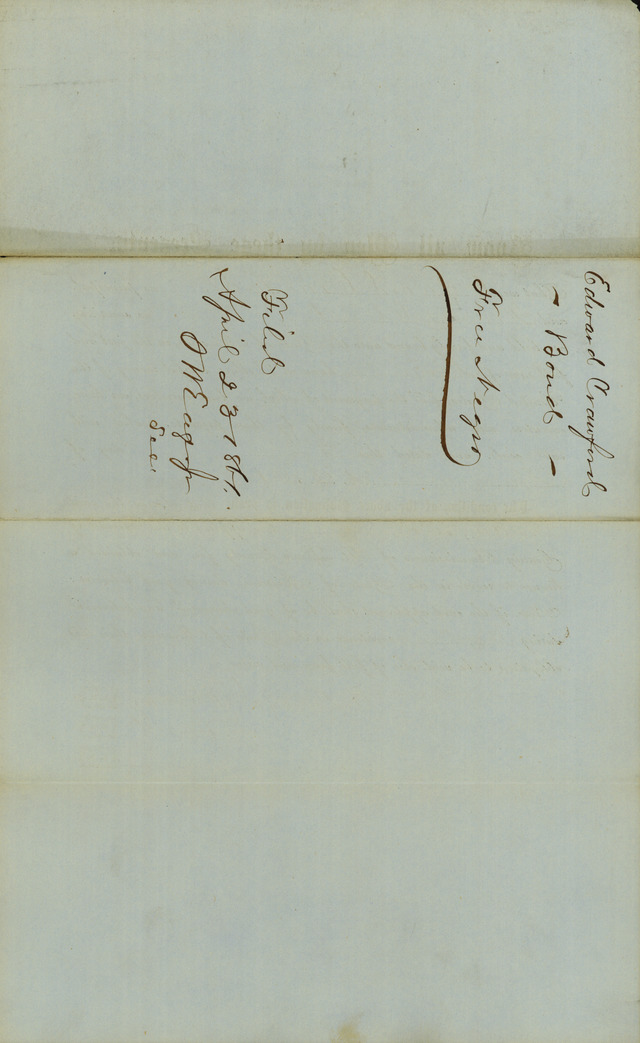 Edward Crawford
- Bond -
Free Negro
Filed
April 23 1861.